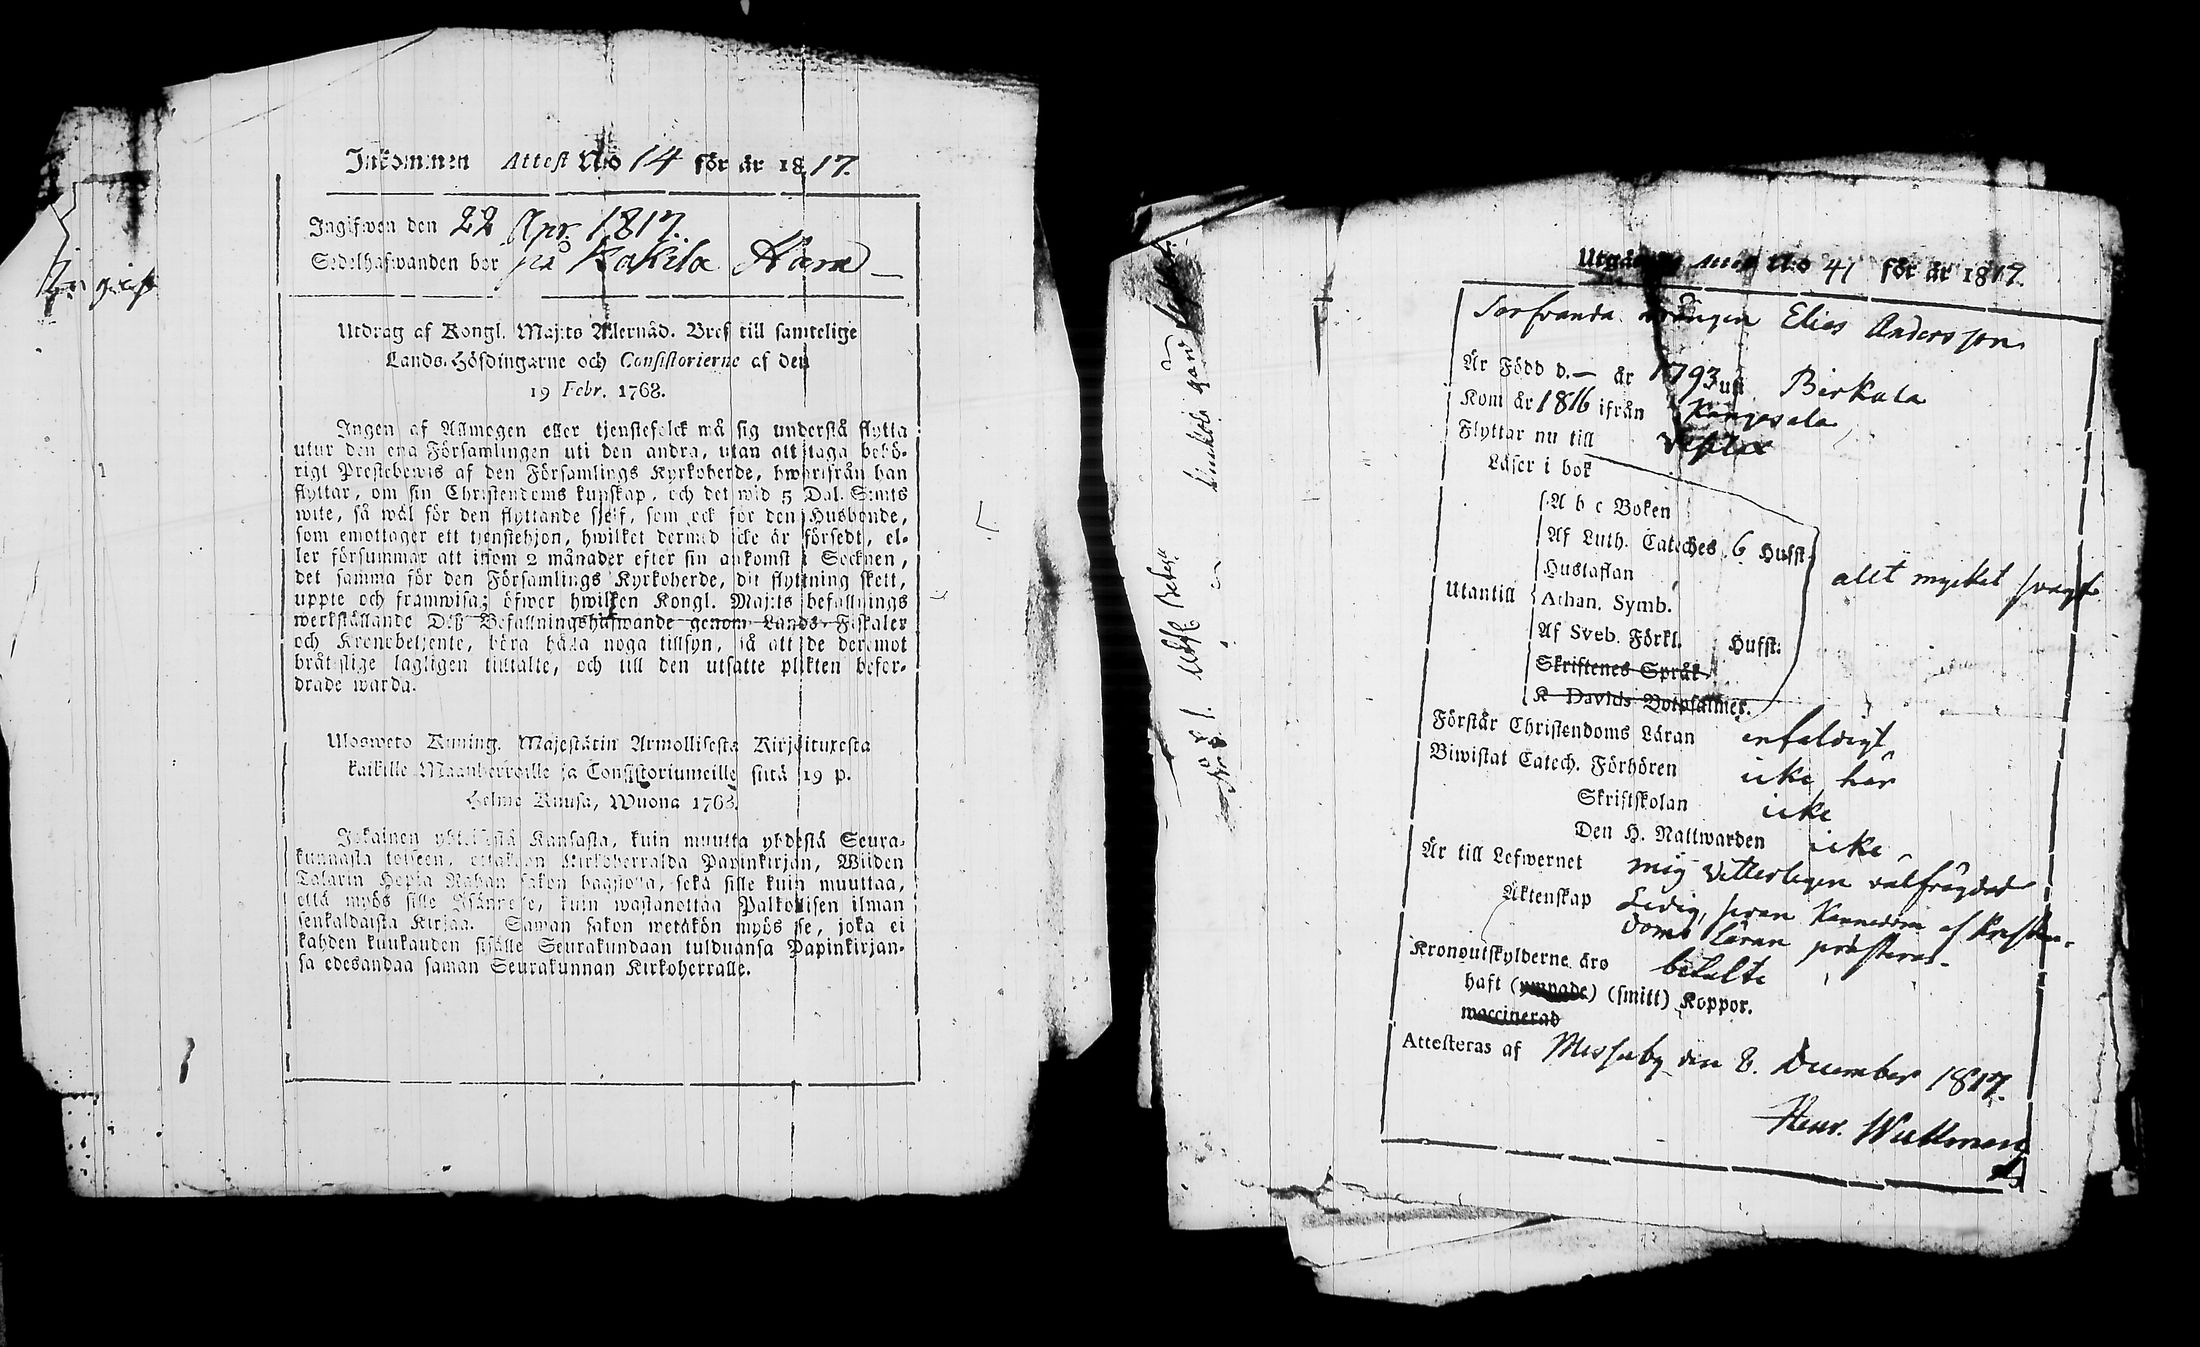 Inkommen Attest No 14 för år 1817.
Ingifwen den 22 Apr. 1817.
Sedelhafwanden bor på Kakila
Utdrag af Kongl. Maj:ts Allernåd. Bref till samtelige
Lands-Höfdingarne och Consistorierne af den
19 Febr. 1768.
Ingen af Allmogen eller tjenstefolck må sig understå flytta
utur den ena Församlingen uti den andra, utan att taga behö-
rigt Prestebewis af den Församlings Kyrkoherde, hwarifrån han
flyttar, om sin Christendoms kunskap, och det wid 5 Dal. S:mts
wite, så wäl för den flyttande sjelf, som ock för den Husbonde,
som emottager ett tjenstehjon, hwilket dermed icke är försedt, el-
ler försummar att inom 2 månader efter sin ankomst i Socknen,
det samma för den Församlings Kyrkoherde, dit flyttning skett,
uppte och framwisa; öfwer hwilken Kongl. Maj:ts befallnings
werkställande Deß Befallningshafwande genom Lands-Fiskaler
och Kronobetjente, böra hålla noga tillsyn, så att de deremot
bråtslige lagligen tilltalte, och till den utsatte plikten befor-
drade warda.
Ulosweto Kuning. Majestätin Armollisesta Kirjoituxesta
kaikille Maanherroille ja Consistoriumeille siitä 19 p.
Helme Kuusa, Wuona 1768.
Jokainen yhteisestä Kansasta, kuin muutta yhdestä Seura-
kunnasta toiseen, ottakoon Kirkoherralda Papinkirjan, Wiiden
Talarin Hopia Rahan sakon haastolla, sekä sille kuin muuttaa,
että myös sille Isännelle, kuin wastanottaa Palkolisen ilman
senkaldaista Kirjaa. Saman sakon wetäkön myös se, joka ei
kahden kuukauden sisälle Seurakundaan tulduansa Papinkirjan-
sa edesandaa saman Seurakunnan Kirkoherralle.
Utgången Attest No 41 för år 1817.
drängen Elias Andersson
Är Född d. — år 1793 uti Birkala
Kom år 1816 ifrån Kangasala
Flyttar nu till
Läser i bok
A b c Boken
Af Luth. Cateches 6 Hufst.
Hustaflan
Utantill Athan. Symb.
allt mycket svagt
Af Sveb. Förkl. Hufst.
Skriftenes Språk
K Davids Botpsalmer.
Förstår Christendoms Läran enfaldigt
Biwistat Catech. Förhören icke här
Skriftskolan icke
Den H. Nattwarden icke
Är till Lefwernet mig vetterligen välfrägdad
Äktenskap Ledig, svan Kännedom af Kristen-
doms Läran prästeras.
Kronoutskylderne äro betalte
haft (ympade) (smitt) Koppor.
waccinerad
Attesteras af Messuby den 8. December 1817.
Henr. Wallman